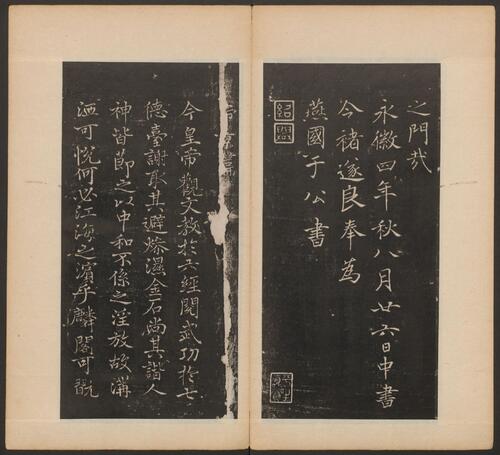 之門哉
永徽四年秋八月廿六日中書
令褚遂良奉為
燕國于公書
紹興
今皇帝觀文教於六經閱武功於七
德臺謝取其避燥濕金石尚其諧人
神皆節之以中和不係之淫放故溝
洫可悅何必江海之濱乎麟閣可翫